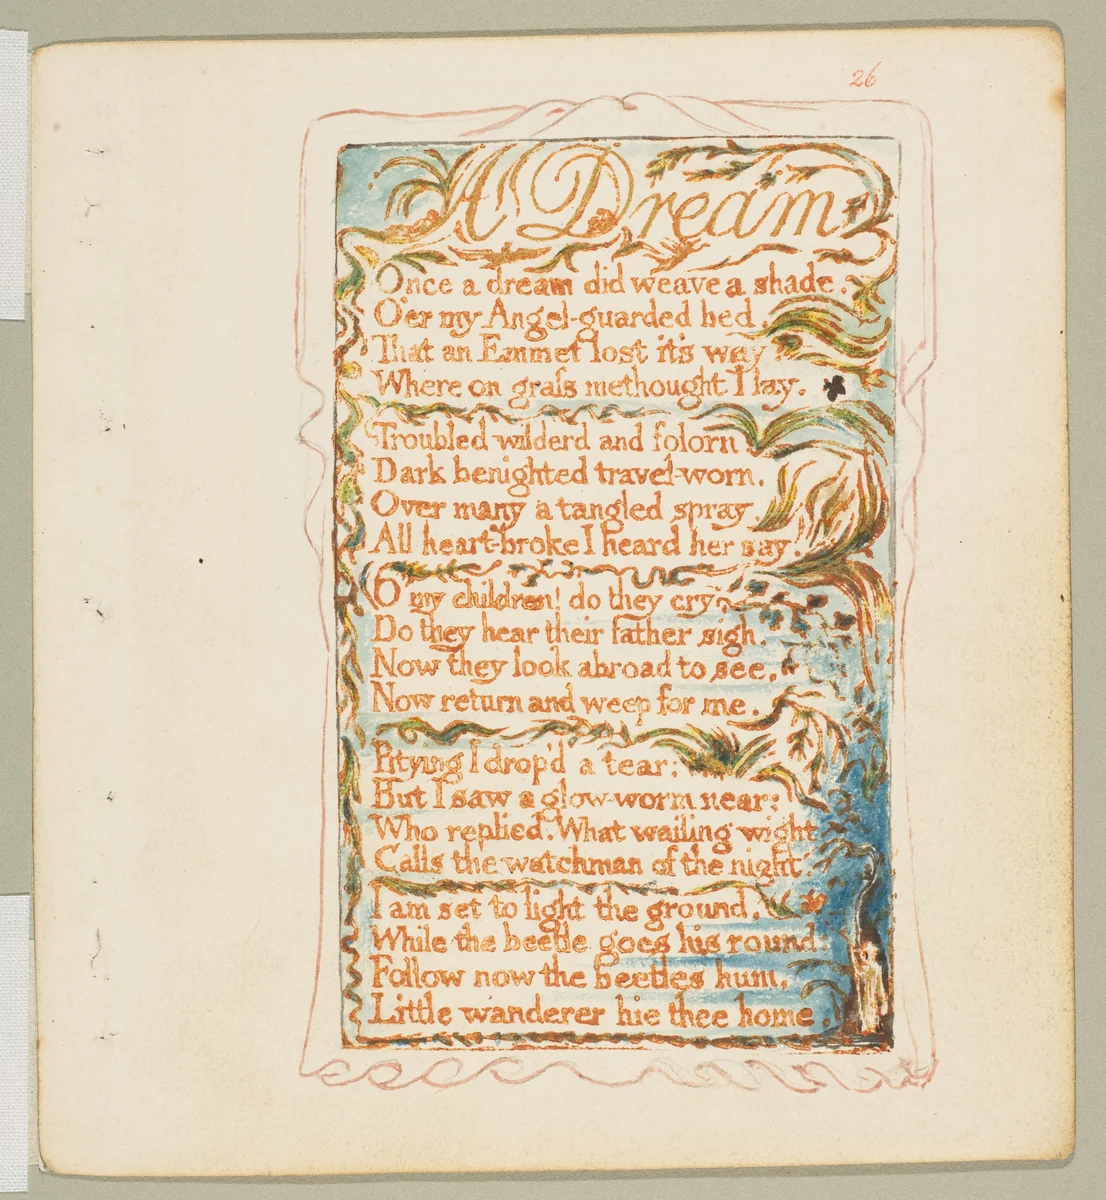 26
A Dream
Once a dream did weave a shade.
O'er my Angel-guarded bed.
That an Emmet lost it's way
Where on graſs methought I lay.
Troubled wilderd and folorn
Dark benighted travel-worn.
Over many a tangled spray.
All heart-broke I heard her say.
O my children! do they cry.
Do they hear their father sigh.
Now they look abroad to see.
Now return and weep for me.
Pitying I drop'd a tear:
But I saw a glow-worm near:
Who replied. What wailing wight
Calls the watchman of the night.
I am set to light the ground,
While the beetle goes his round:
Follow now the beetles hum,
Little wanderer hie thee home.